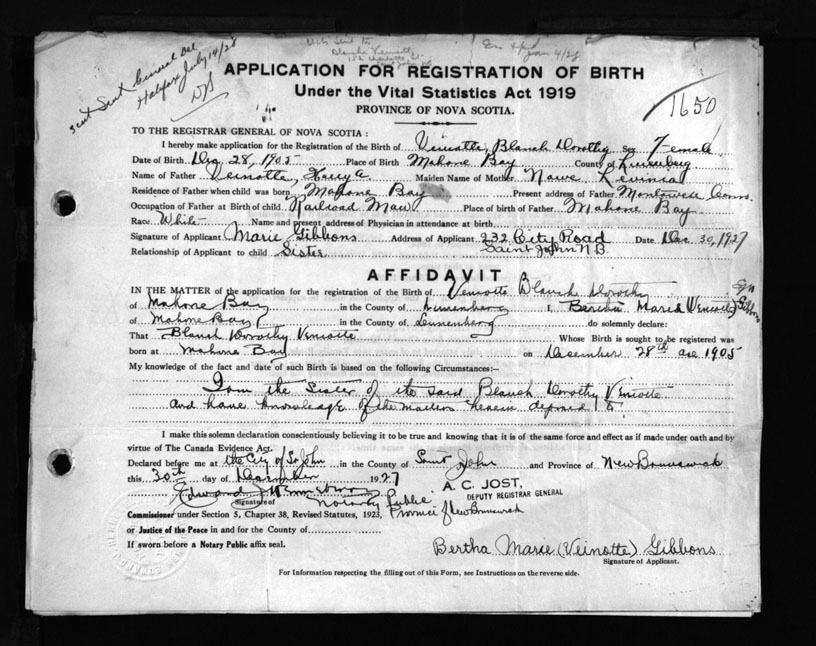 Sent General Del
Halifax July 14/28
Blanche Veinotte
Jan 4/28
APPLICATION FOR REGISTRATION OF BIRTH
Under the Vital Statistics Act 1919
PROVINCE OF NOVA SCOTIA.
1650
TO THE REGISTRAR GENERAL OF NOVA SCOTIA :
I hereby make application for the Registration of the Birth of Veinotte, Blanch Dorothy Sex Female
Date of Birth Dec 28, 1905 Place of Birth Mahone Bay County of Lunenburg
Name of Father Veinotte, Harry A. Maiden Name of Mother Nawe Levinia
Residence of Father when child was born Mahone Bay Present address of Father Montowese Conn.
Occupation of Father at Birth of child Railroad Man Place of birth of Father Mahone Bay
Race White Name and present address of Physician in attendance at birth
Signature of Applicant Marie Gibbons Address of Applicant 232 City Road Date Dec 30, 1927
Saint John N.B.
Relationship of Applicant to child Sister
AFFIDAVIT
IN THE MATTER of the application for the registration of the Birth of Veinotte Blanch Dorothy
of Mahone Bay in the County of Lunenberg I, Bertha Marie (Veinotte) Gibbons
of Mahone Bay in the County of Lunenberg do solemnly declare:
That Blanch Dorothy Veinotte Whose Birth is sought to be registered was
born at Mahone Bay on December 28th 1905
My knowledge of the fact and date of such Birth is based on the following Circumstances:—
I am the Sister of the said Blanch Dorothy Veinotte
and have knowledge of the matters herein deposed to.
I make this solemn declaration conscientiously believing it to be true and knowing that it is of the same force and effect as if made under oath and by
virtue of The Canada Evidence Act.
Declared before me at the City of St John in the County of Saint John and Province of New Brunswick
this 30th day of December 1927
A. C. JOST,
DEPUTY REGISTRAR GENERAL
Edward J
Signature of Notary Public
Province of New Brunswick
Commissioner under Section 5, Chapter 38, Revised Statutes, 1923,
or Justice of the Peace in and for the County of
If sworn before a Notary Public affix seal.
Bertha Marie (Veinotte) Gibbons
Signature of Applicant.
For Information respecting the filling out of this Form, see Instructions on the reverse side.